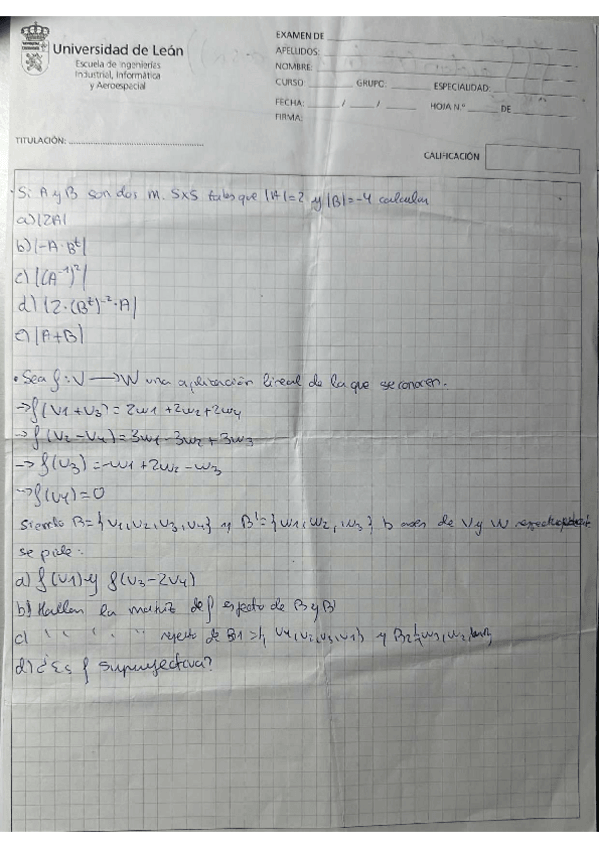 Universidad de León
Escuela de Ingenierías
Industrial, Informática
y Aeroespacial
EXAMEN DE
APELLIDOS:
NOMBRE:
CURSO: GRUPO: ESPECIALIDAD:
FECHA: / / HOJA N.º DE
FIRMA:
TITULACIÓN:
CALIFICACIÓN
· Si A y B son dos m. 5x5 tales que |A|=2 y |B|=-4 calcular
a) |2A|
b) |-A·Bᵗ|
c) |(A⁻¹)²|
d) |2·(Bᵗ)⁻²·A|
e) |A+B|
· Sea f: V → W una aplicación lineal de la que se conocen.
→ f(v1+v3) = 2w1 +2w2+2w4
→ f(v2-v4) = 3w1-3w2+3w3
→ f(v3) = -w1+2w2-w3
→ f(v4) = 0
siendo B={v1,v2,v3,v4} y B'={w1,w2,w3} bases de V y W
se pide:
a) f(v1) y f(v3-2v4)
b) Hallar la matriz de f respecto de B y B'
c) " " " " respecto de B1={v4,v2,v3,v1} y B2={w3,w2,w1}
d) ¿Es f suprayectiva?